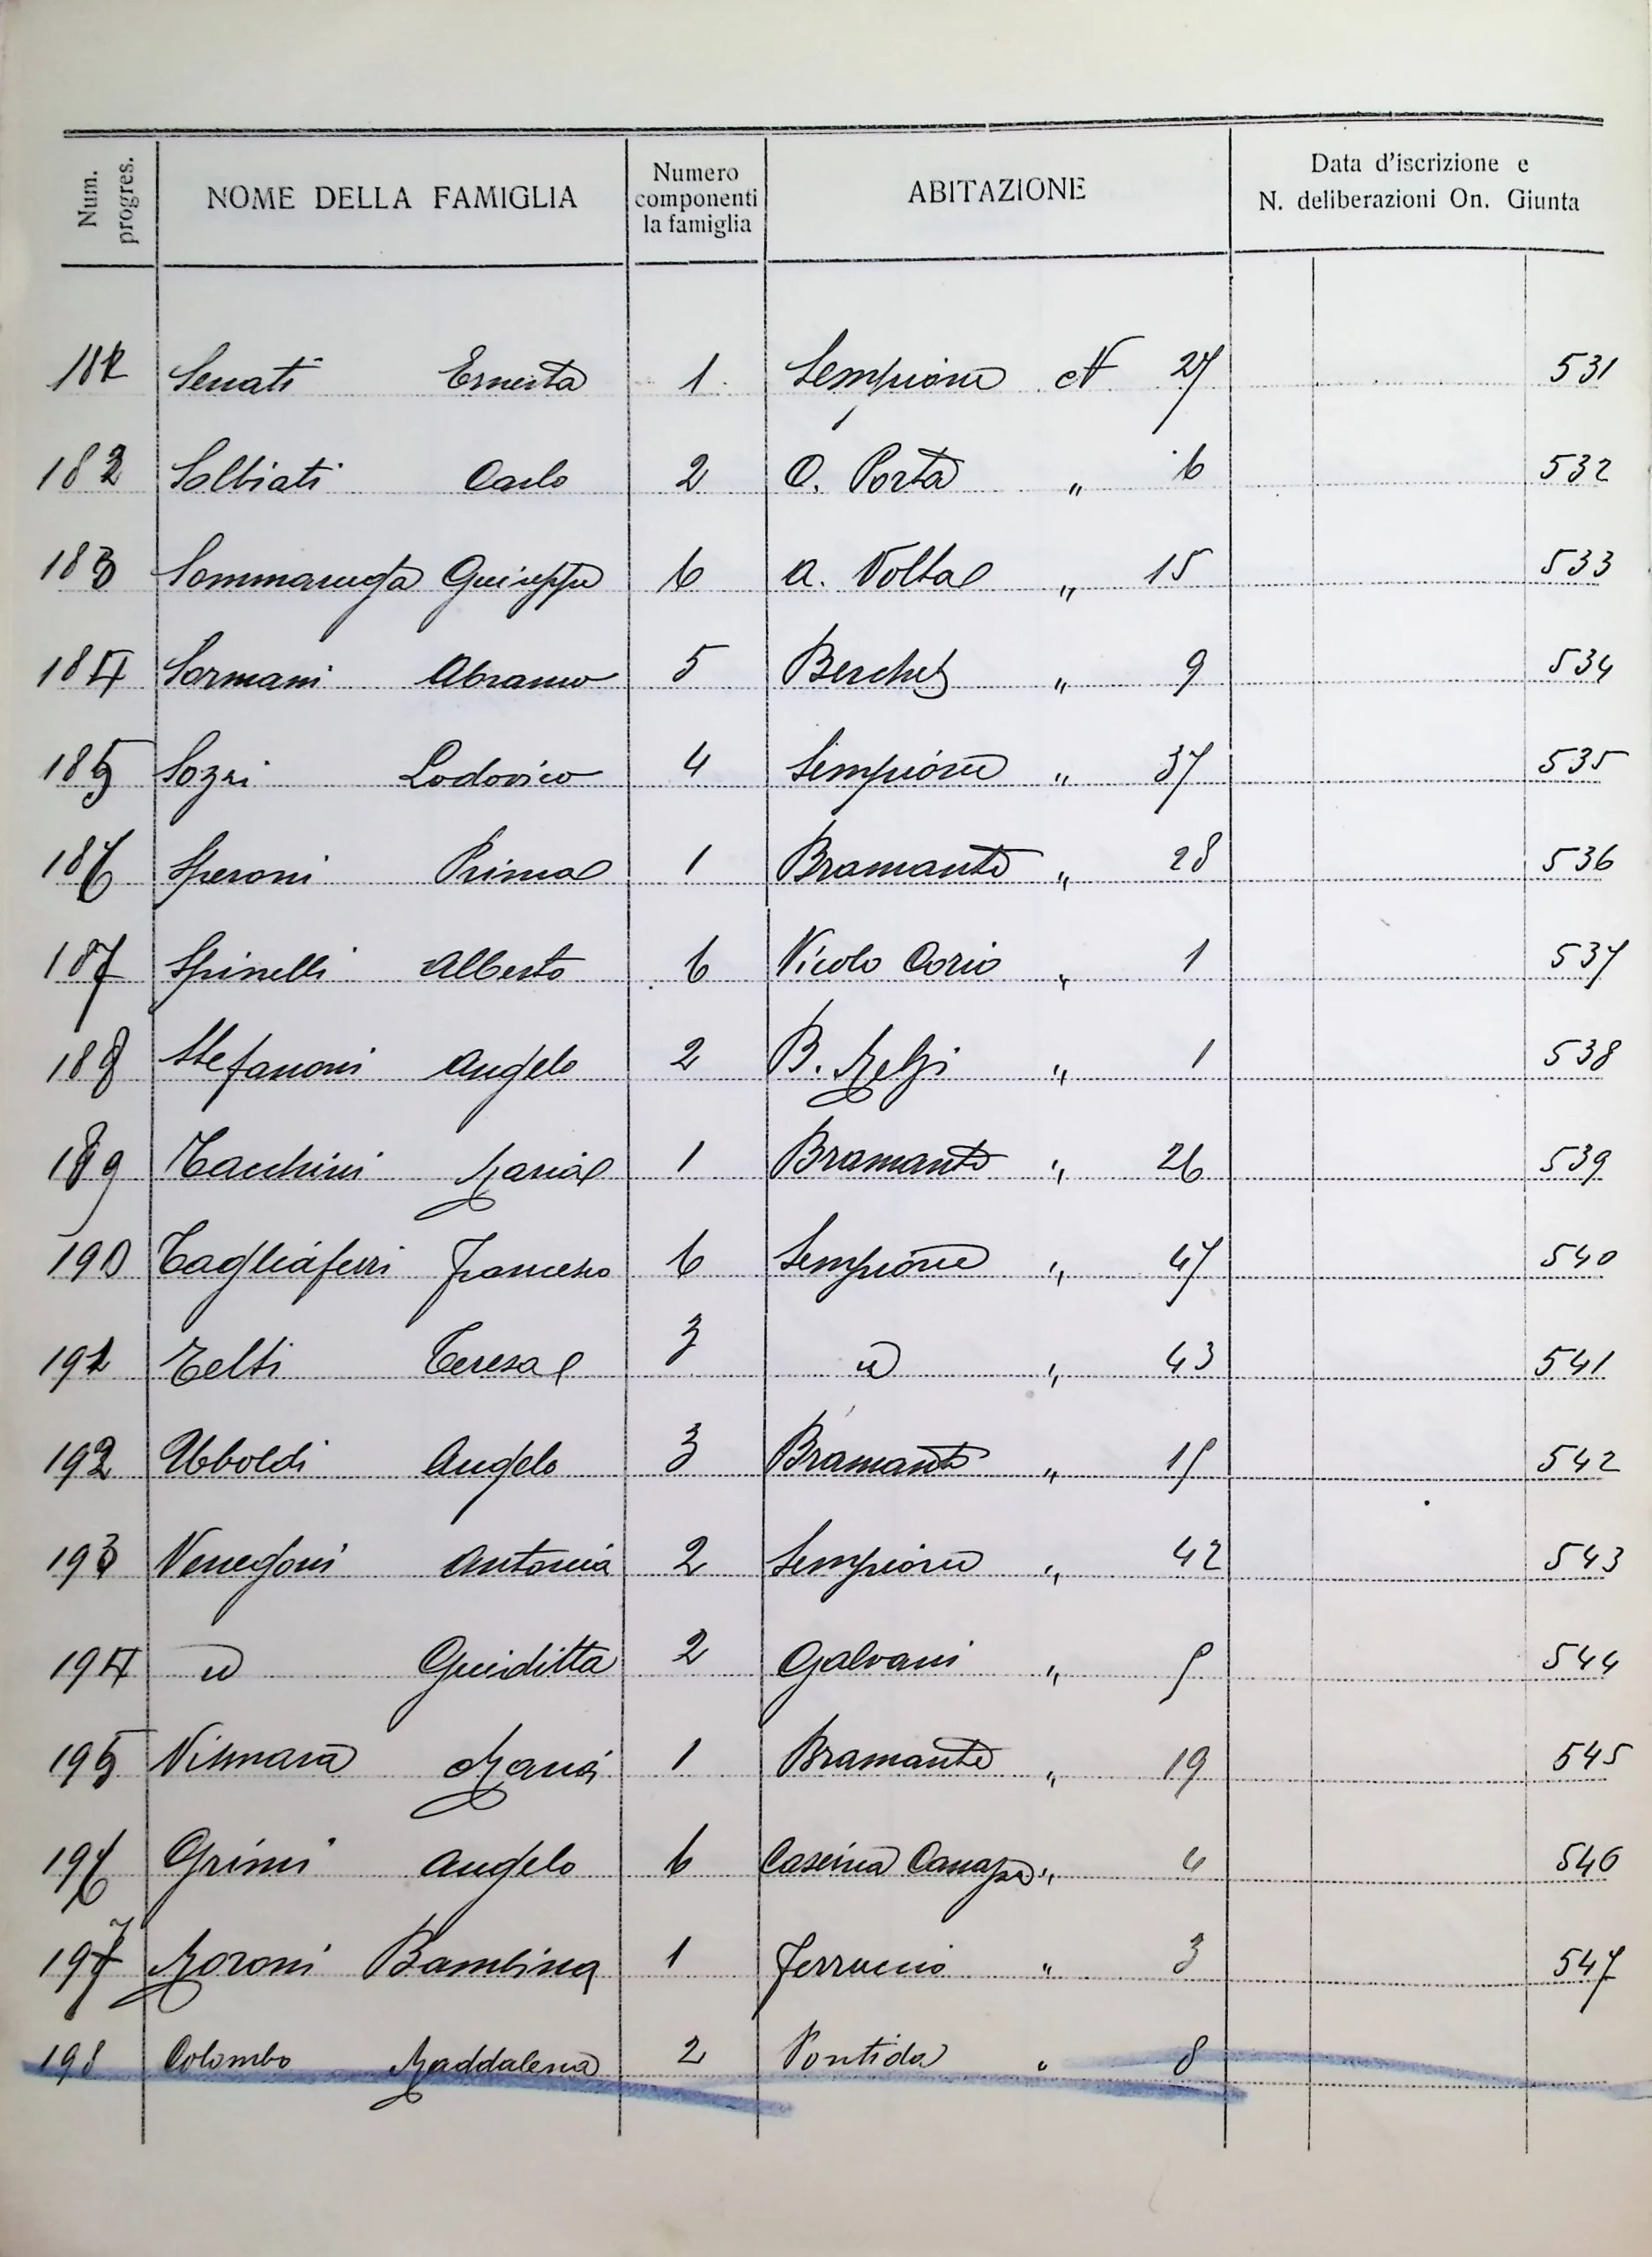 Num. progres. NOME DELLA FAMIGLIA Numero componenti la famiglia ABITAZIONE Data d'iscrizione e N. deliberazioni On. Giunta
181 Senati Ernesta 1 Sempione N 27 531
182 Salbiati Carlo 2 C. Porta " 6 532
183 Sommaruga Giuseppe 6 A. Volta " 15 533
184 Sormani Abramo 5 Berchet " 9 534
185 Sozzi Lodovico 4 Sempione " 37 535
186 Speroni Prima 1 Bramante " 28 536
187 Spinelli Alberto 6 Vicolo Corio " 1 537
188 Stefanoni Angelo 2 B. Melzi " 1 538
189 Tacchini Maria 1 Bramante " 26 539
190 Tagliaferri Francesco 6 Sempione " 47 540
191 Teresa 3 " 43 541
192 Uboldi Angelo 3 Bramante " 15 542
193 Venegoni Antonia 2 Sempione " 42 543
194 Giuditta 2 Galvani " 544
195 Vismara Maria 1 Bramante " 19 545
196 Grimi Angelo 6 Cascina " 4 546
197 Moroni Bambina 1 Ferruccio " 3 547
198 Colombo Maddalena 2 Pontida " 8